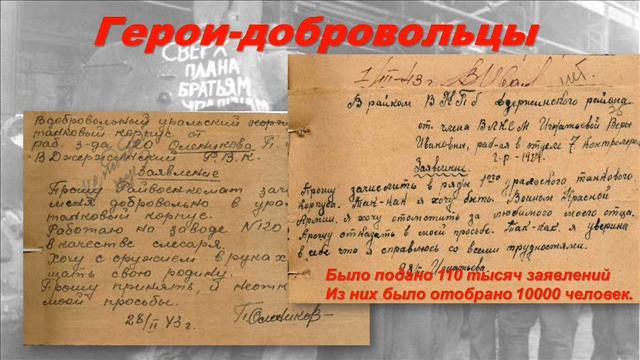 Герои-добровольцы
СВЕРХ
ПЛАНА
БРАТЬЯМ
В добровольный уральский
танковый корпус от
раб. з-да 120 Оленикова П.
В Джержинский Р.В.К.
Заявление
Прошу Райвоенкомат зачи
меня добровольно в урал
танковый корпус.
Работаю на заводе №120
в качестве слесаря.
Хочу с оружием в руках
щать свою родину.
Прошу принять, и не отк
моей просьбы.
28/II 43 г. П. Олеников
1/III-43 г.
В райком ВКПб Дзержинского района
от члена ВЛКСМ Игнатьевой Веры
Ивановны, раб-ая в отделе 7 контролером
Заявление.
Прошу зачислить в ряды 1го уральского танкового
корпуса. Так-как я хочу быть Воином Красной
Армии, я хочу отомстить за любимого моего отца.
Прошу не отказать в моей просьбе. Так-как я уверена
в себе что я справлюсь со всеми трудностями.
Игнатьева.
Было подано 110 тысяч заявлений
Из них было отобрано 10000 человек.